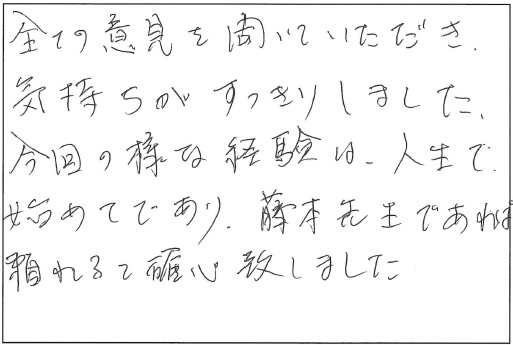 全ての意見を聞いていただき、
気持ちがすっきりしました、
今回の様な経験は、人生で
始めてであり、藤本先生であれば
頼れると確心致しました